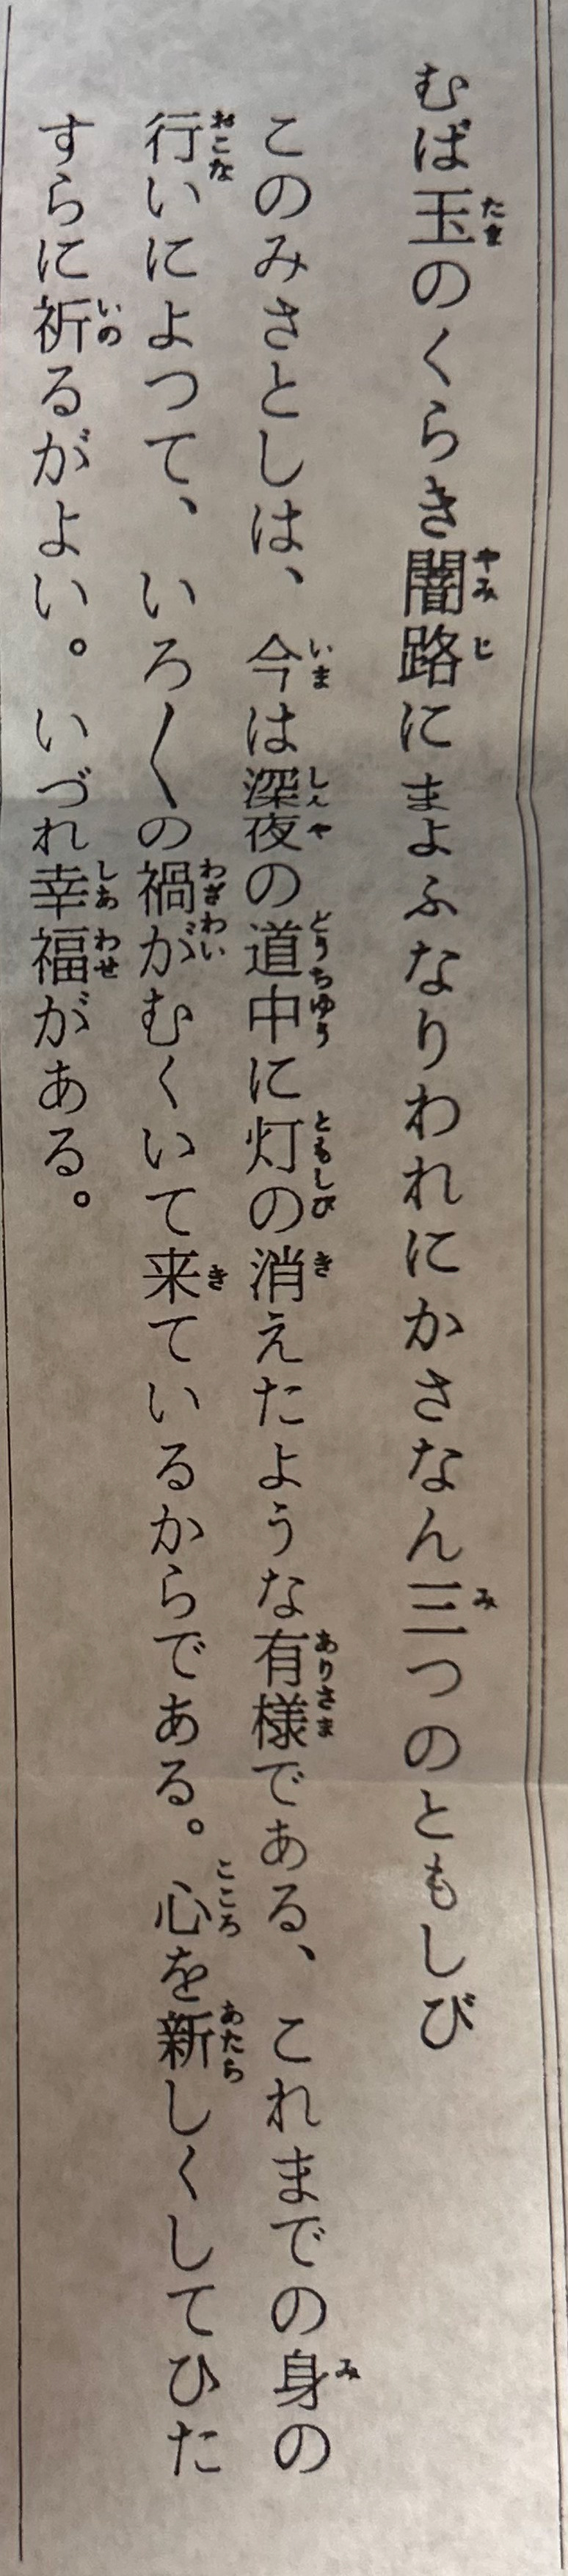 むば玉のくらき闇路にまよふなりわれにかさなん三つのともしび
このみさとしは、今は深夜の道中に灯の消えたような有様である、これまでの身の
行いによつて、いろ〳〵の禍がむくいて来ているからである。心を新しくしてひた
すらに祈るがよい。いづれ幸福がある。